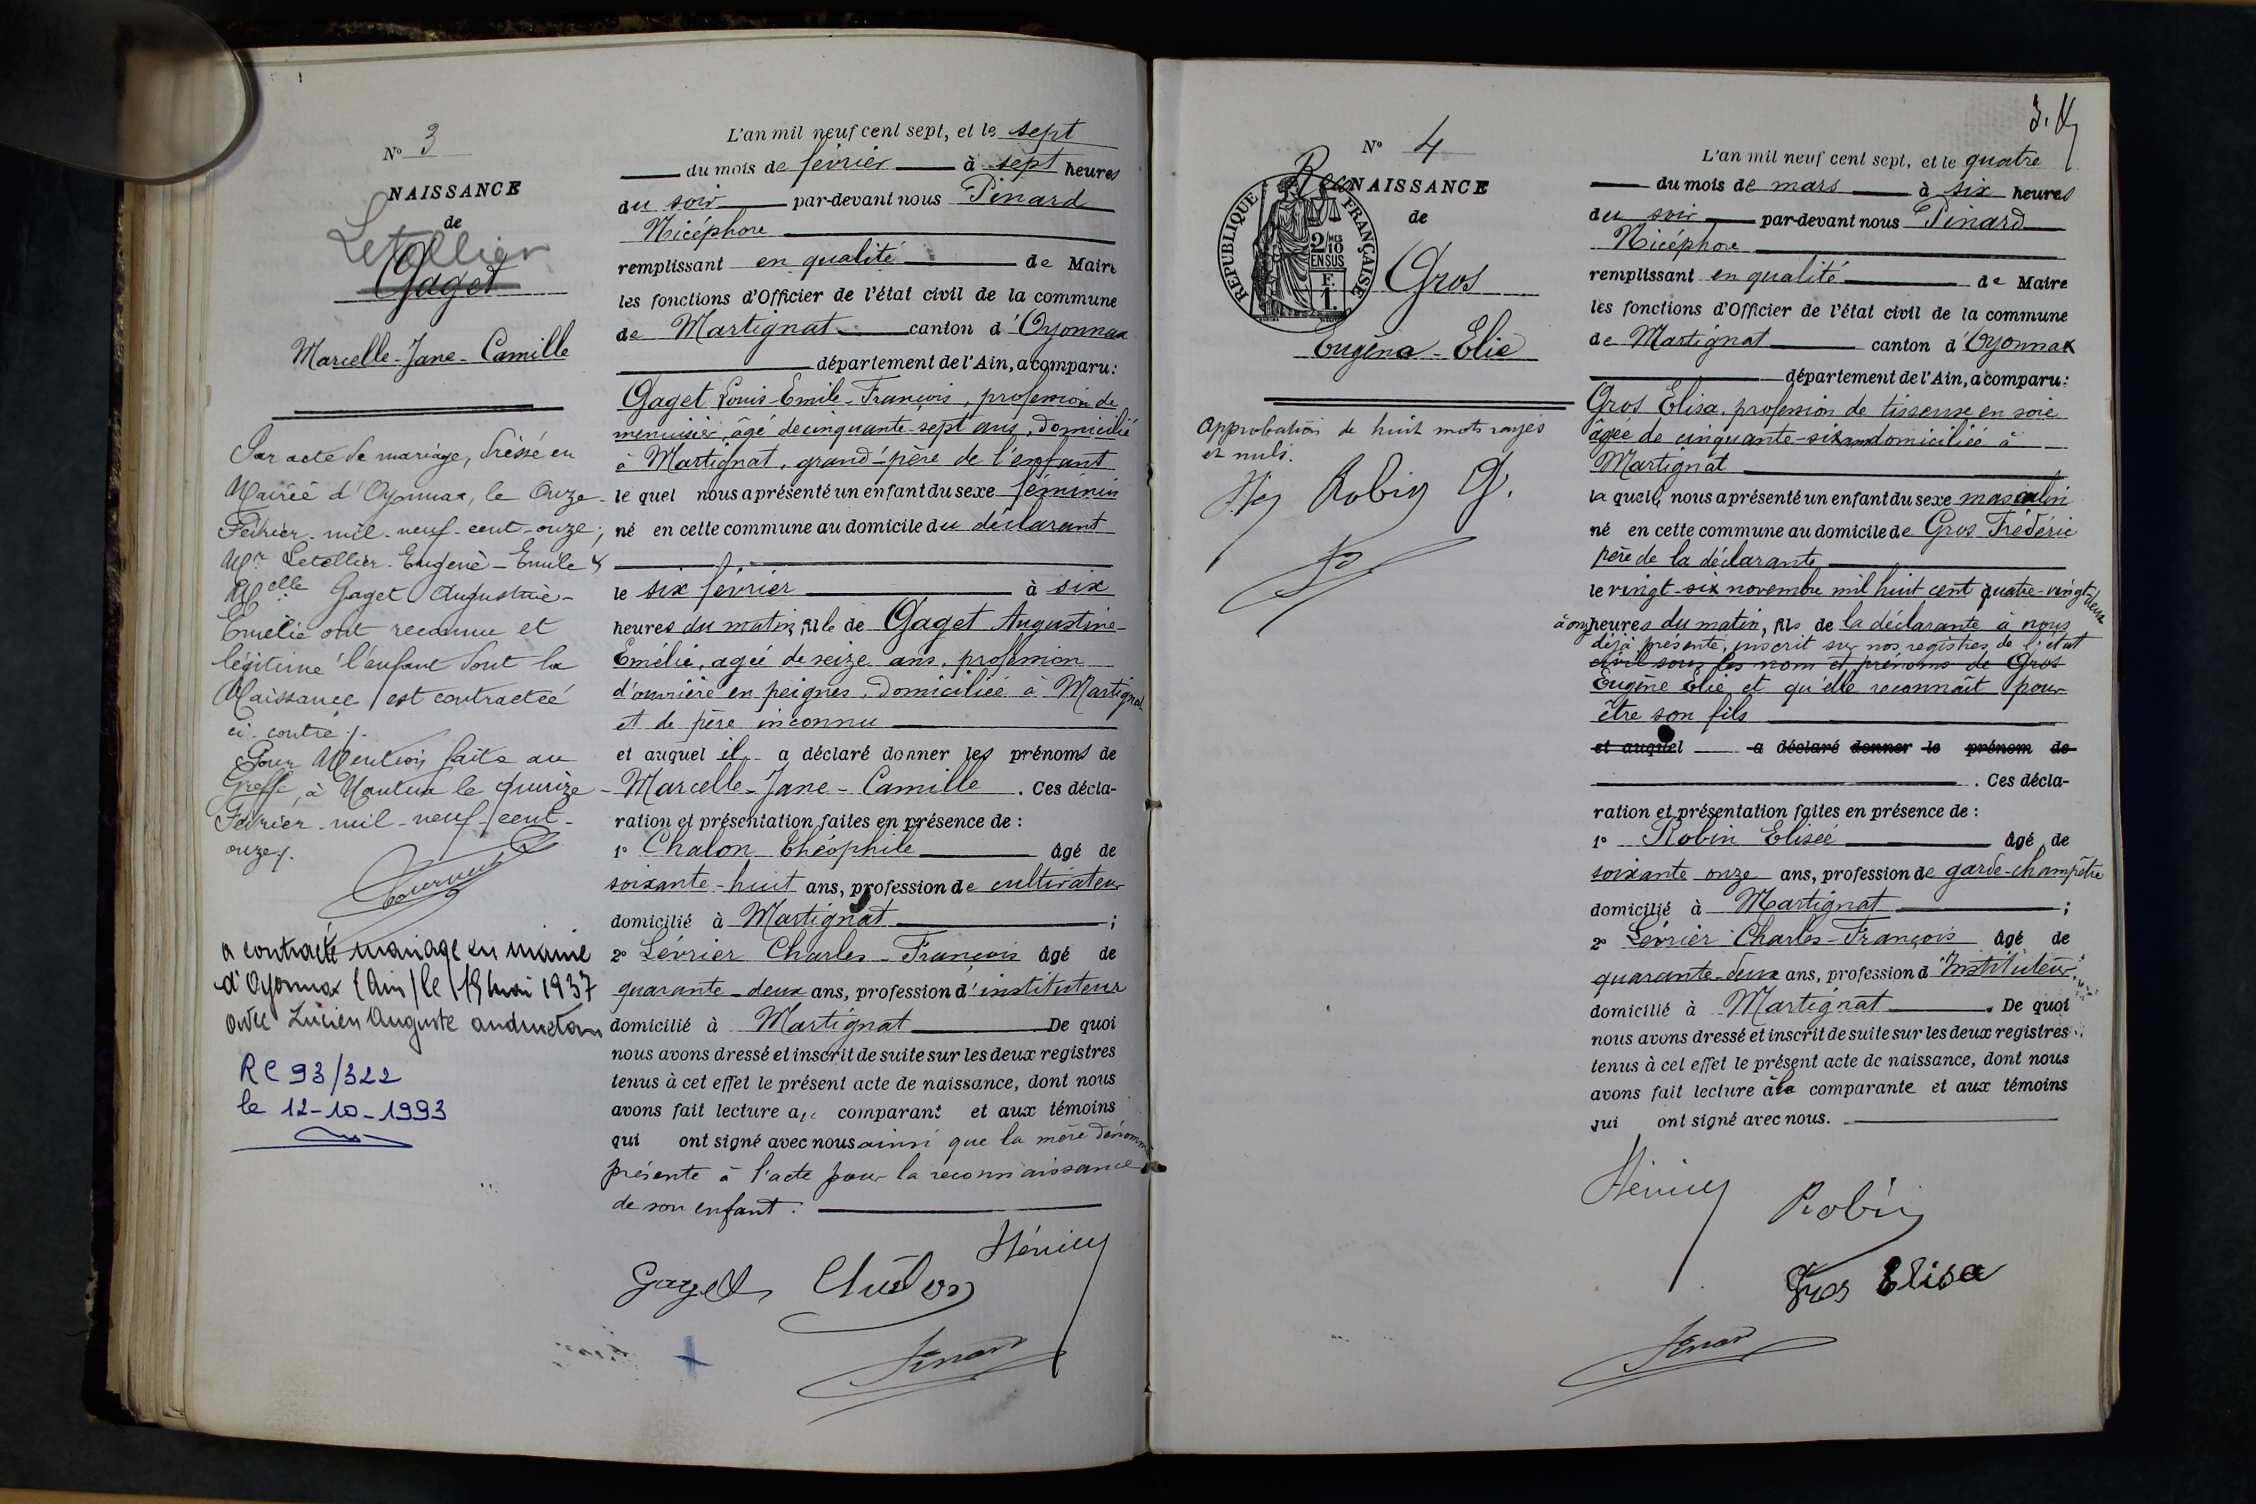 N° 3
NAISSANCE
de
Letellier
Gaget
Marcelle-Jane-Camille
Par acte de mariage, dressé en
Mairie d'Oyonnax, le Onze
Février mil-neuf-cent-onze,
Mr Letellier Eugène-Emile &
Melle Gaget Augustine-
Emélie ont reconnu et
légitimé l'enfant dont la
Naissance est contractée
ci-contre /.
Pour Mention faite au
Greffe, à Nantua le quinze
Février mil-neuf-cent-
onze /.
a contracté mariage en mairie
d'Oyonnax (Ain) le 15 mai 1937
avec Lucien Auguste
RC 93/322
le 12-10-1993
L'an mil neuf cent sept, et le sept
du mois de février à sept heures
du soir par-devant nous Pinard
Nicéphore
remplissant en qualité de Maire
les fonctions d'Officier de l'état civil de la commune
de Martignat canton d'Oyonnax
département de l'Ain, a comparu :
Gaget Louis-Emile-François, profession de
menuisier, âgé de cinquante-sept ans, domicilié
à Martignat, grand'-père de l'enfant
le quel nous a présenté un enfant du sexe féminin
né en cette commune au domicile du déclarant
le six février à six
heures du matin, fille de Gaget Augustine-
Emélie, agée de seize ans, profession
d'ouvrière en peignes, domiciliée à Martignat
et de père inconnu
et auquel il a déclaré donner les prénoms de
Marcelle-Jane-Camille. Ces décla-
ration et présentation faites en présence de :
1° Chalon Théophile âgé de
soixante-huit ans, profession de cultivateur
domicilié à Martignat ;
2° Lévrier Charles-François âgé de
quarante-deux ans, profession d'instituteur
domicilié à Martignat De quoi
nous avons dressé et inscrit de suite sur les deux registres
tenus à cet effet le présent acte de naissance, dont nous
avons fait lecture au comparant et aux témoins
qui ont signé avec nous ainsi que la mère dénommée
présente à l'acte pour la reconnaissance
de son enfant.
Gaget
Pinard
3.
N° 4
Recon NAISSANCE
de
RÉPUBLIQUE FRANÇAISE
2/10 MES
EN SUS
F.
1.
Gros
Eugène-Elie
Approbation de huit mots rayés
et nuls.
Robin G.
L'an mil neuf cent sept, et le quatre
du mois de mars à six heures
du soir par-devant nous Pinard
Nicéphore
remplissant en qualité de Maire
les fonctions d'Officier de l'état civil de la commune
de Martignat canton d'Oyonnax
département de l'Ain, a comparu :
Gros Elisa, profession de tisseuse en soie
âgée de cinquante-six ans domiciliée à
Martignat
la quelle nous a présenté un enfant du sexe masculin
né en cette commune au domicile de Gros Frédéric
père de la déclarante
le vingt-six novembre mil huit cent quatre-vingt-deux
à onze heures du matin, fils de la déclarante à nous
déjà présenté, inscrit sur nos registres de l'état
civil sous les nom et prénoms de Gros
Eugène Elie et qu'elle reconnaît pour
être son fils
et auquel a déclaré donner le prénom de
. Ces décla-
ration et présentation faites en présence de :
1° Robin Elisée âgé de
soixante onze ans, profession de garde-champêtre
domicilié à Martignat ;
2° Lévrier Charles-François âgé de
quarante-deux ans, profession d'Instituteur
domicilié à Martignat. De quoi
nous avons dressé et inscrit de suite sur les deux registres
tenus à cet effet le présent acte de naissance, dont nous
avons fait lecture à la comparante et aux témoins
qui ont signé avec nous.
Robin
Gros Elisa
Pinard